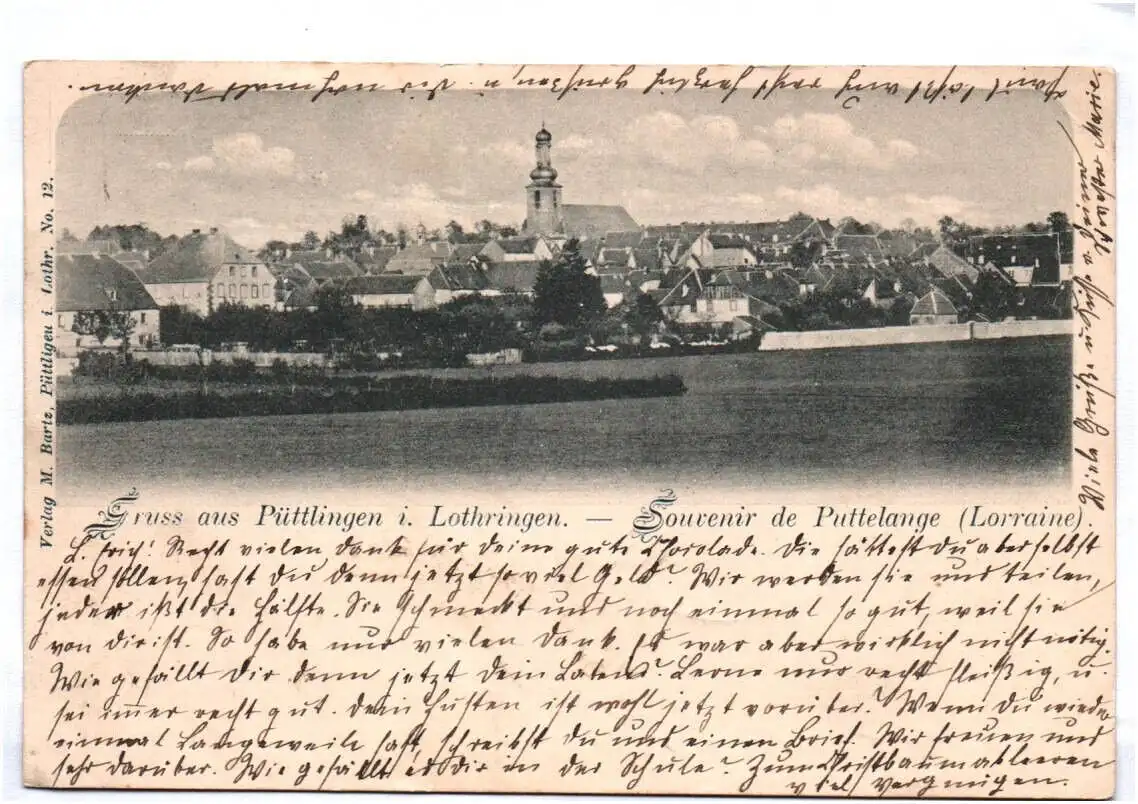 Verlag M. Bartz, Püttligen i. Lothr. No. 12.
Gruss aus Püttlingen i. Lothringen. — Souvenir de Puttelange (Lorraine).
L. Erich! Recht vielen Dank für deine gute Chocolade. Die hättest du aber selbst
essen sollen, hast du denn jetzt so viel Geld? Wir werden sie uns teilen,
jeder ißt die Hälfte. Sie schmeckt uns noch einmal so gut, weil sie
von dir ist. So habe nur vielen Dank. Es war aber wirklich nicht nötig.
Wie gefällt dir denn jetzt dein Latein? Lerne nur recht fleißig, u.
sei immer recht gut. Dein Husten ist wohl jetzt vorüber? Wenn du wieder
einmal Langeweile hast, schreibst du uns einen Brief. Wir freuen uns
sehr darüber. Wie gefällt es dir in der Schule? Zum Christbaumableeren
viel Vergnügen.
läßt auch recht herzlich grüßen u. dir nochmals danken.
Viele Grüße u. Küsse v. Deiner
Schwester Marie.